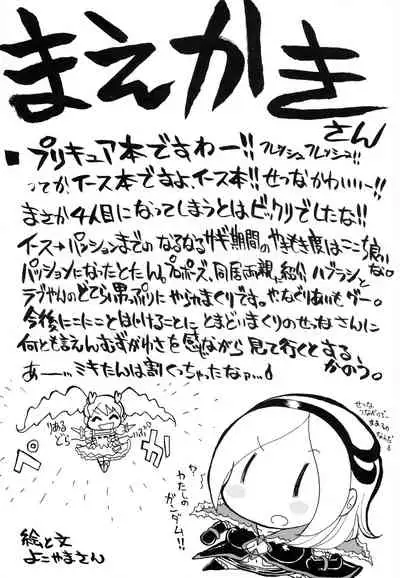 まえがき
さん
■プリキュア本ですわー!! フレッシュフレッシュ!!
ってかイース本ですよ、イース本!! せつなかわいいー!!
まさか4人目になってしまうとはビックリでしたな!!
イース→パッションまでのなるなるサギ期間のやきもき度はここち良いな。
パッションになったとたん。プロポーズ、同居、両親に紹介、ハブラシと
ラブやんのどてら男っぷりにやられまくりです。やなどりあいもグー。
今後にこにことはじけることにとまどいまくりのせつなさんに
何とも言えんむずがゆさを感じながら見て行くとするかのう。
あー……、ミキたんは割くっちゃたなァ…。
りある
どら
ぱい
ペ
カ
せつな
つながりで。
ままその
なんだ。
わたしの
ガンダム!!
絵と文
よこやまさん